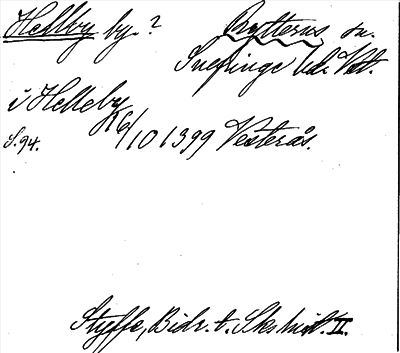 Hellby by.? Rytterns sn.
Snefringe hd. Vstm.
i Helleby
16/10 1399 Vesterås.
S. 94.
Styffe, Bidr. t. Sk. hist. II.